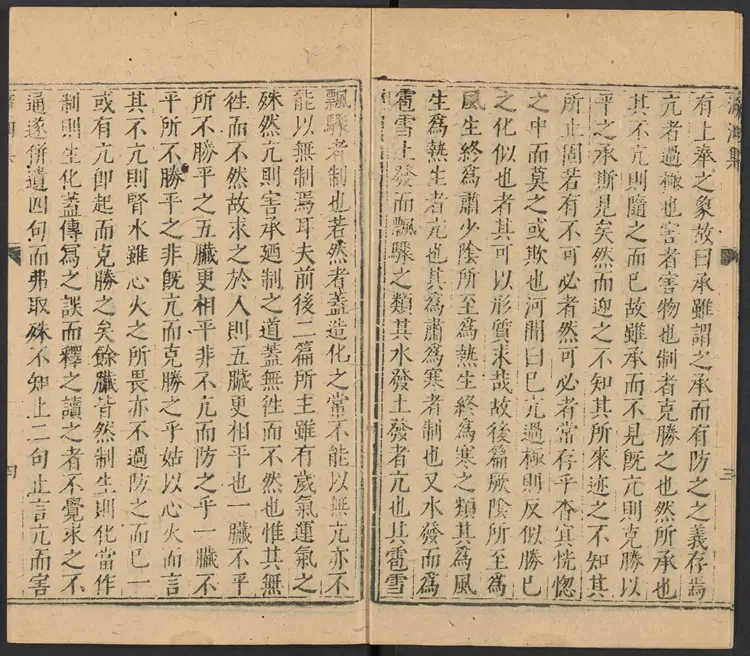 有上奉之象故曰承雖謂之承而有防之之義存焉
亢者過極也害者害物也制者克勝之也然所承也
其不亢則隨之而已故雖承而不見旣亢則克勝以
平之承斯見矣然而迎之不知其所來迹之不知其
所止固若有不可必者然可必者常存乎杳冥恍惚
之中而莫之或欺也河間曰已亢過極則反似勝已
之化似也者其可以形質求哉故後篇厥陰所至爲
風生終爲肅少陰所至爲熱生終爲寒之類其爲風
生爲熱生者亢也其爲肅爲寒者制也又水發而爲
雹雪土發而飄驟之類其水發土發者亢也其雹雪
飄驟者制也若然者蓋造化之常不能以無亢亦不
能以無制焉耳夫前後二篇所主雖有歲氣運氣之
殊然亢則害承廼制之道蓋無徃而不然也惟其無
徃而不然故求之於人則五臟更相平也一臟不平
所不勝平之五臟更相平非不亢而防之乎一臟不
平所不勝平之非旣亢而克勝之乎姑以心火而言
其不亢則腎水雖心火之所畏亦不過防之而已一
或有亢卽起而克勝之矣餘臟皆然制生則化當作
制則生化蓋傳寫之誤而釋之讀之者不覺求之不
通遂併遺四句而弗取殊不知上二句止言亢而害
三
四